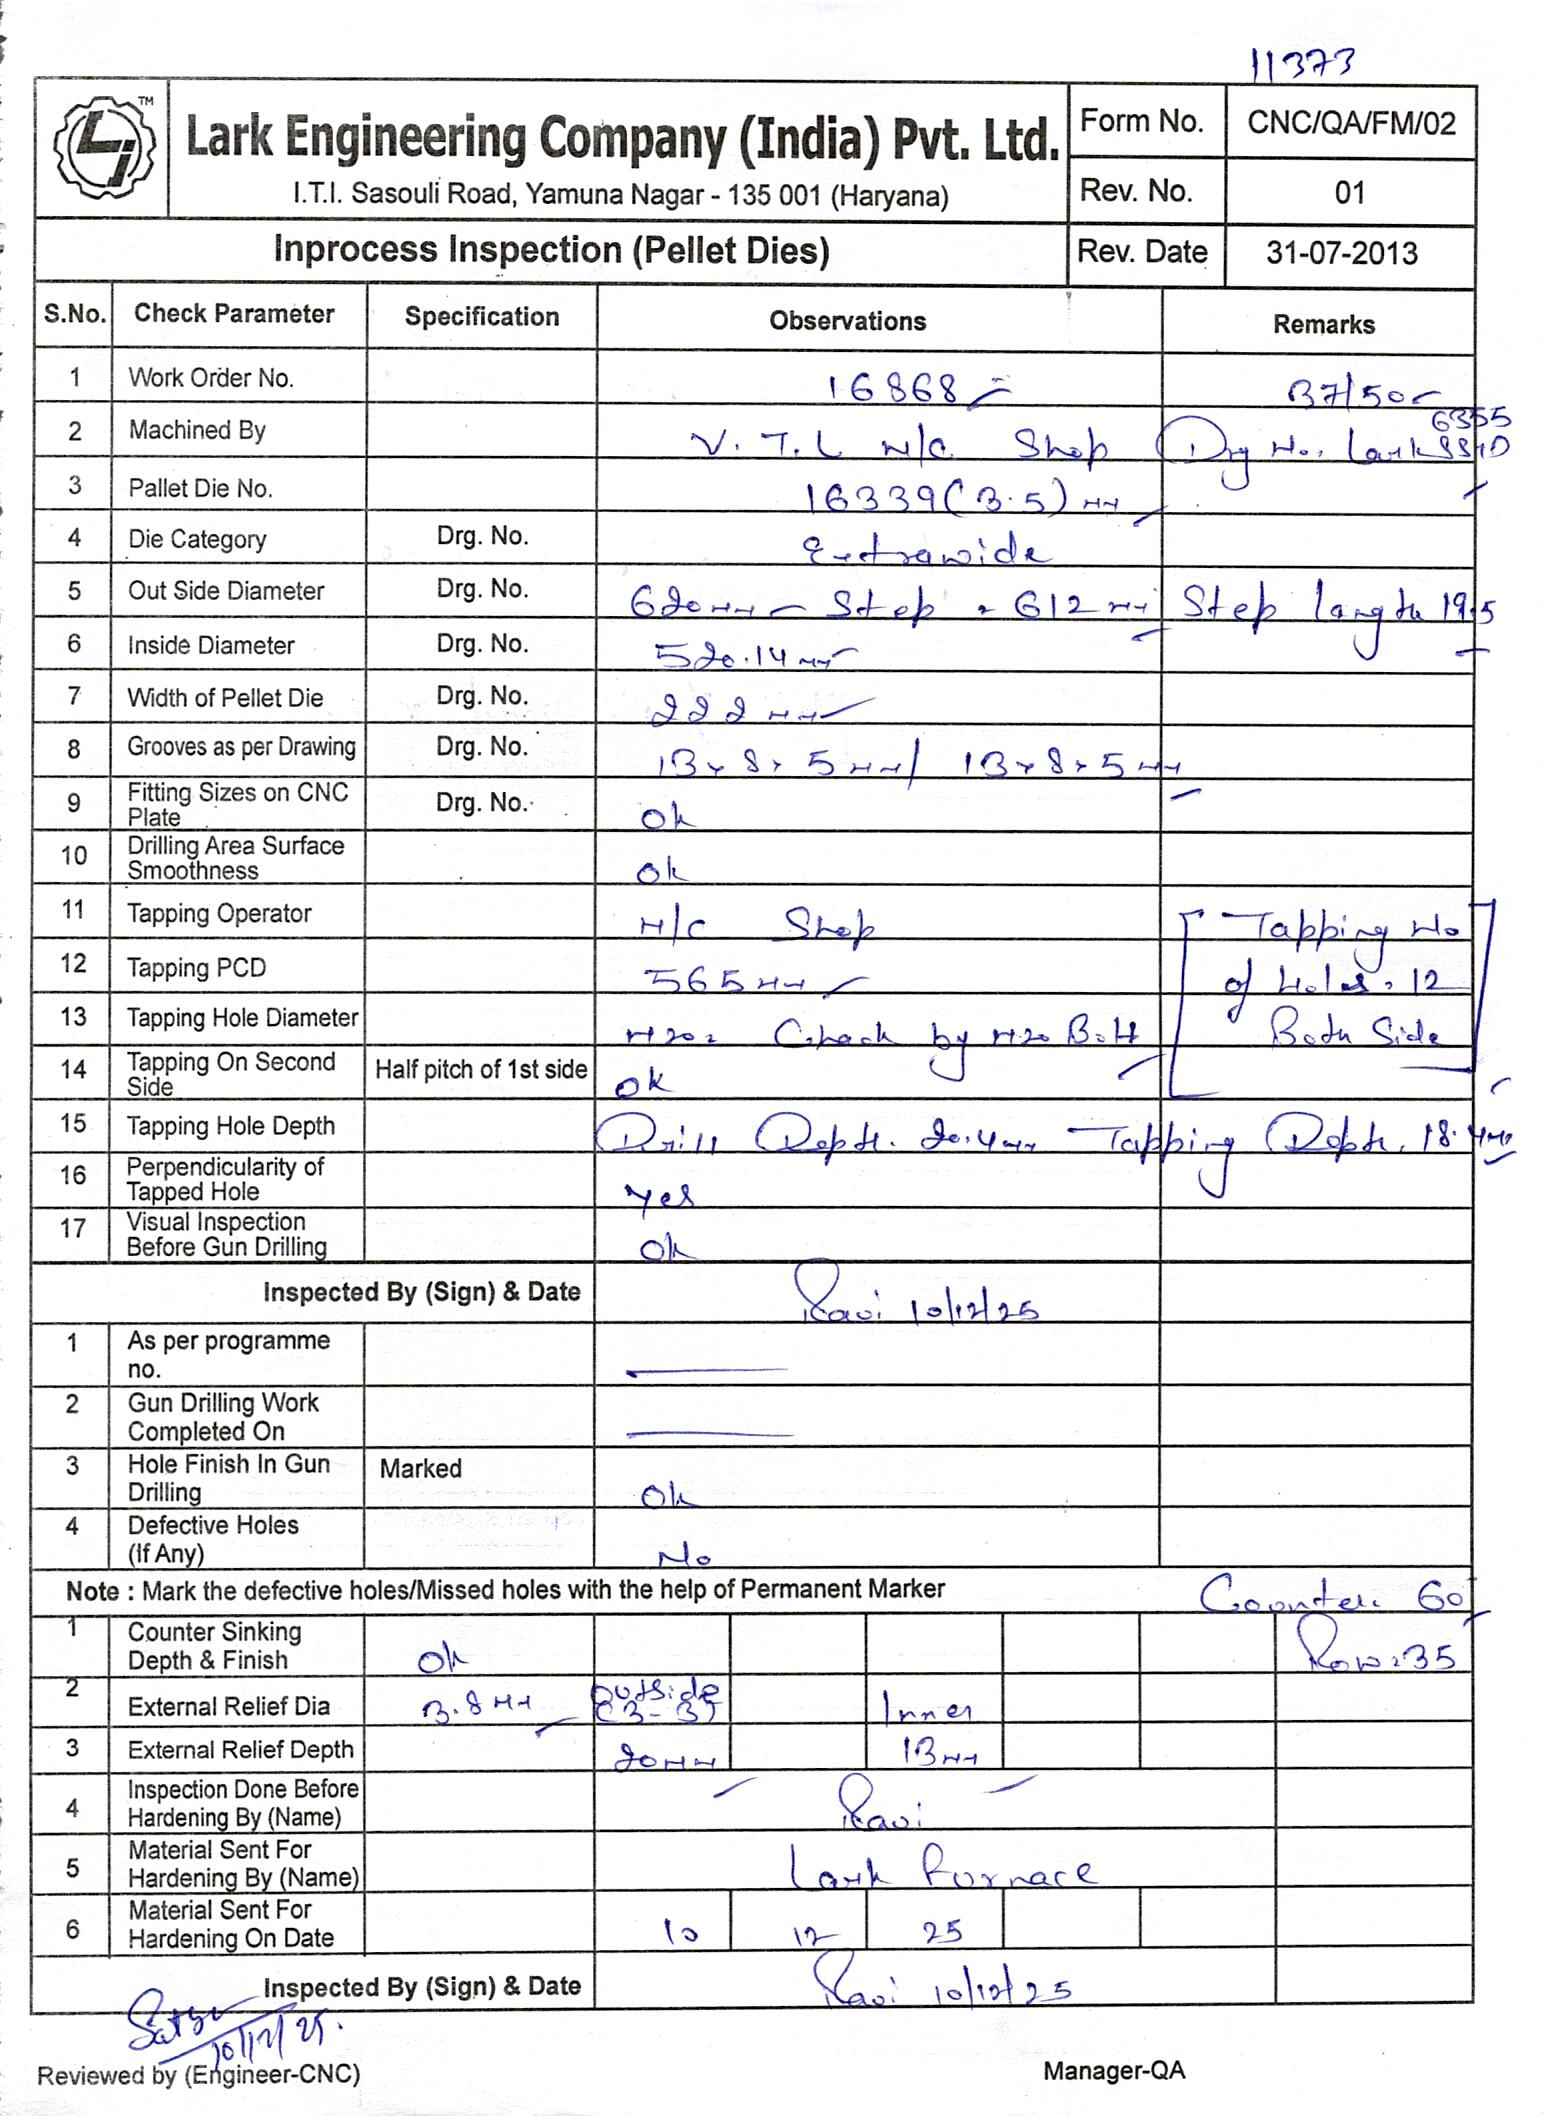 11373
TM
Lark Engineering Company (India) Pvt. Ltd.
I.T.I. Sasouli Road, Yamuna Nagar - 135 001 (Haryana)
Form No. CNC/QA/FM/02
Rev. No. 01
Inprocess Inspection (Pellet Dies) Rev. Date 31-07-2013
S.No. Check Parameter Specification Observations Remarks
1 Work Order No. 16868 37/50
2 Machined By V.T.L M/C Shop Drg No. Lark 6355
3 Pallet Die No. 16339(3.5)mm
4 Die Category Drg. No. Extrawide
5 Out Side Diameter Drg. No. 620mm Step = 612mm Step length 19.5
6 Inside Diameter Drg. No. 520.14mm
7 Width of Pellet Die Drg. No. 222mm
8 Grooves as per Drawing Drg. No. 13x8x5mm/ 13x8x5mm
9 Fitting Sizes on CNC Plate Drg. No. Ok
10 Drilling Area Surface Smoothness Ok
11 Tapping Operator M/C Shop Tapping No
12 Tapping PCD 565mm of Holes = 12
13 Tapping Hole Diameter M20 = Check by M20 Bolt Both Side
14 Tapping On Second Side Half pitch of 1st side Ok
15 Tapping Hole Depth Drill Depth. 20.4mm Tapping Depth. 18.4mm
16 Perpendicularity of Tapped Hole Yes
17 Visual Inspection Before Gun Drilling Ok
Inspected By (Sign) & Date Ravi 10/12/25
1 As per programme no.
2 Gun Drilling Work Completed On
3 Hole Finish In Gun Drilling Marked Ok
4 Defective Holes (If Any) No
Note : Mark the defective holes/Missed holes with the help of Permanent Marker Counter. 60
1 Counter Sinking Depth & Finish Ok Row = 35
2 External Relief Dia 3.8mm Outside (3-3) Inner
3 External Relief Depth 20mm 13mm
4 Inspection Done Before Hardening By (Name) Ravi
5 Material Sent For Hardening By (Name) Lark Furnace
6 Material Sent For Hardening On Date 10 12 25
Inspected By (Sign) & Date Ravi 10/12/25
10/12/25.
Reviewed by (Engineer-CNC) Manager-QA